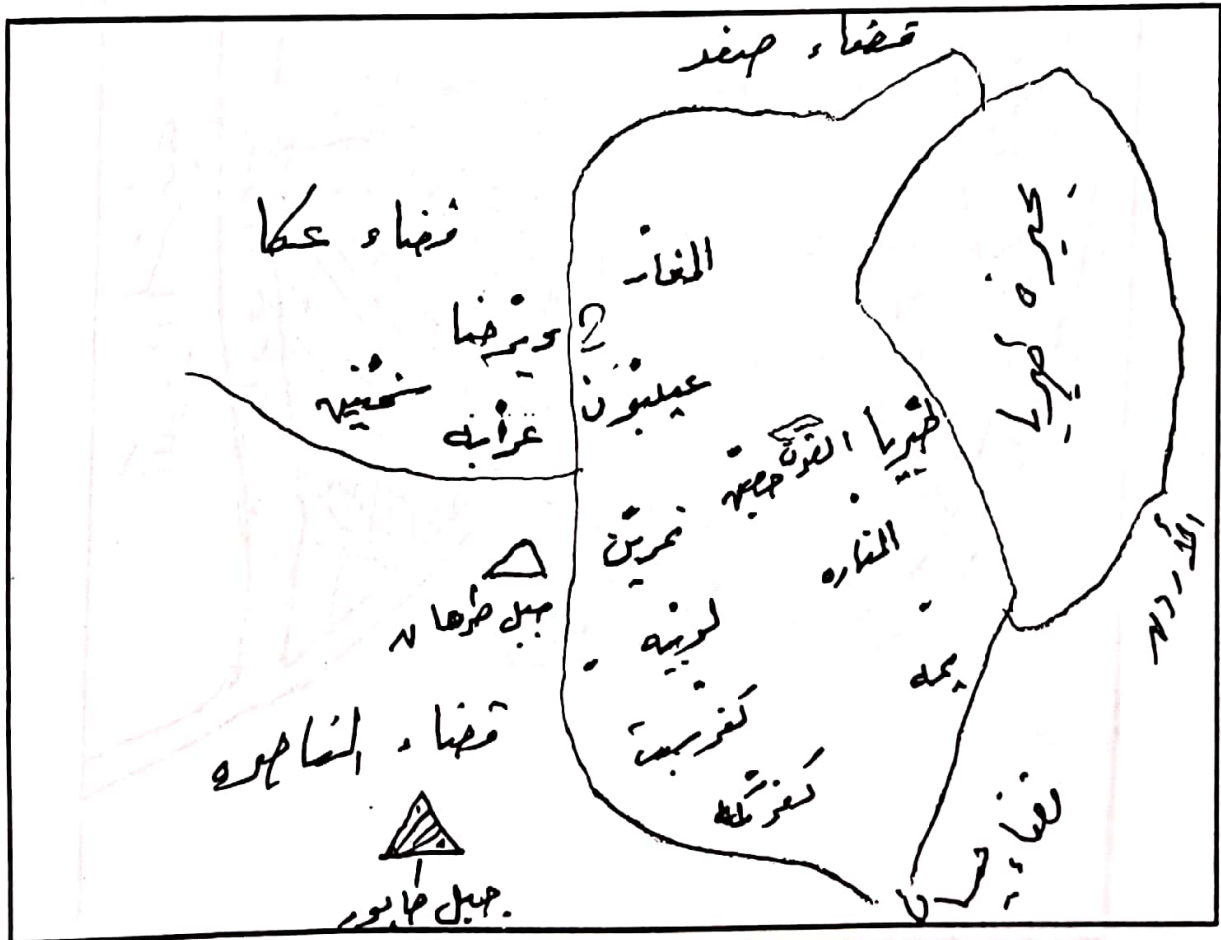 قضاء صفد
قضاء عكا
بحيرة طبريا
المغار
ديرحنا
سخنين
عرابه
عيلبون
طبريا
حطين
نمرين
المناره
الأردن
جبل طرعان
لوبيه
يمه
قضاء الناصره
كفرسبت
كفركما
قضاء بيسان
جبل طابور